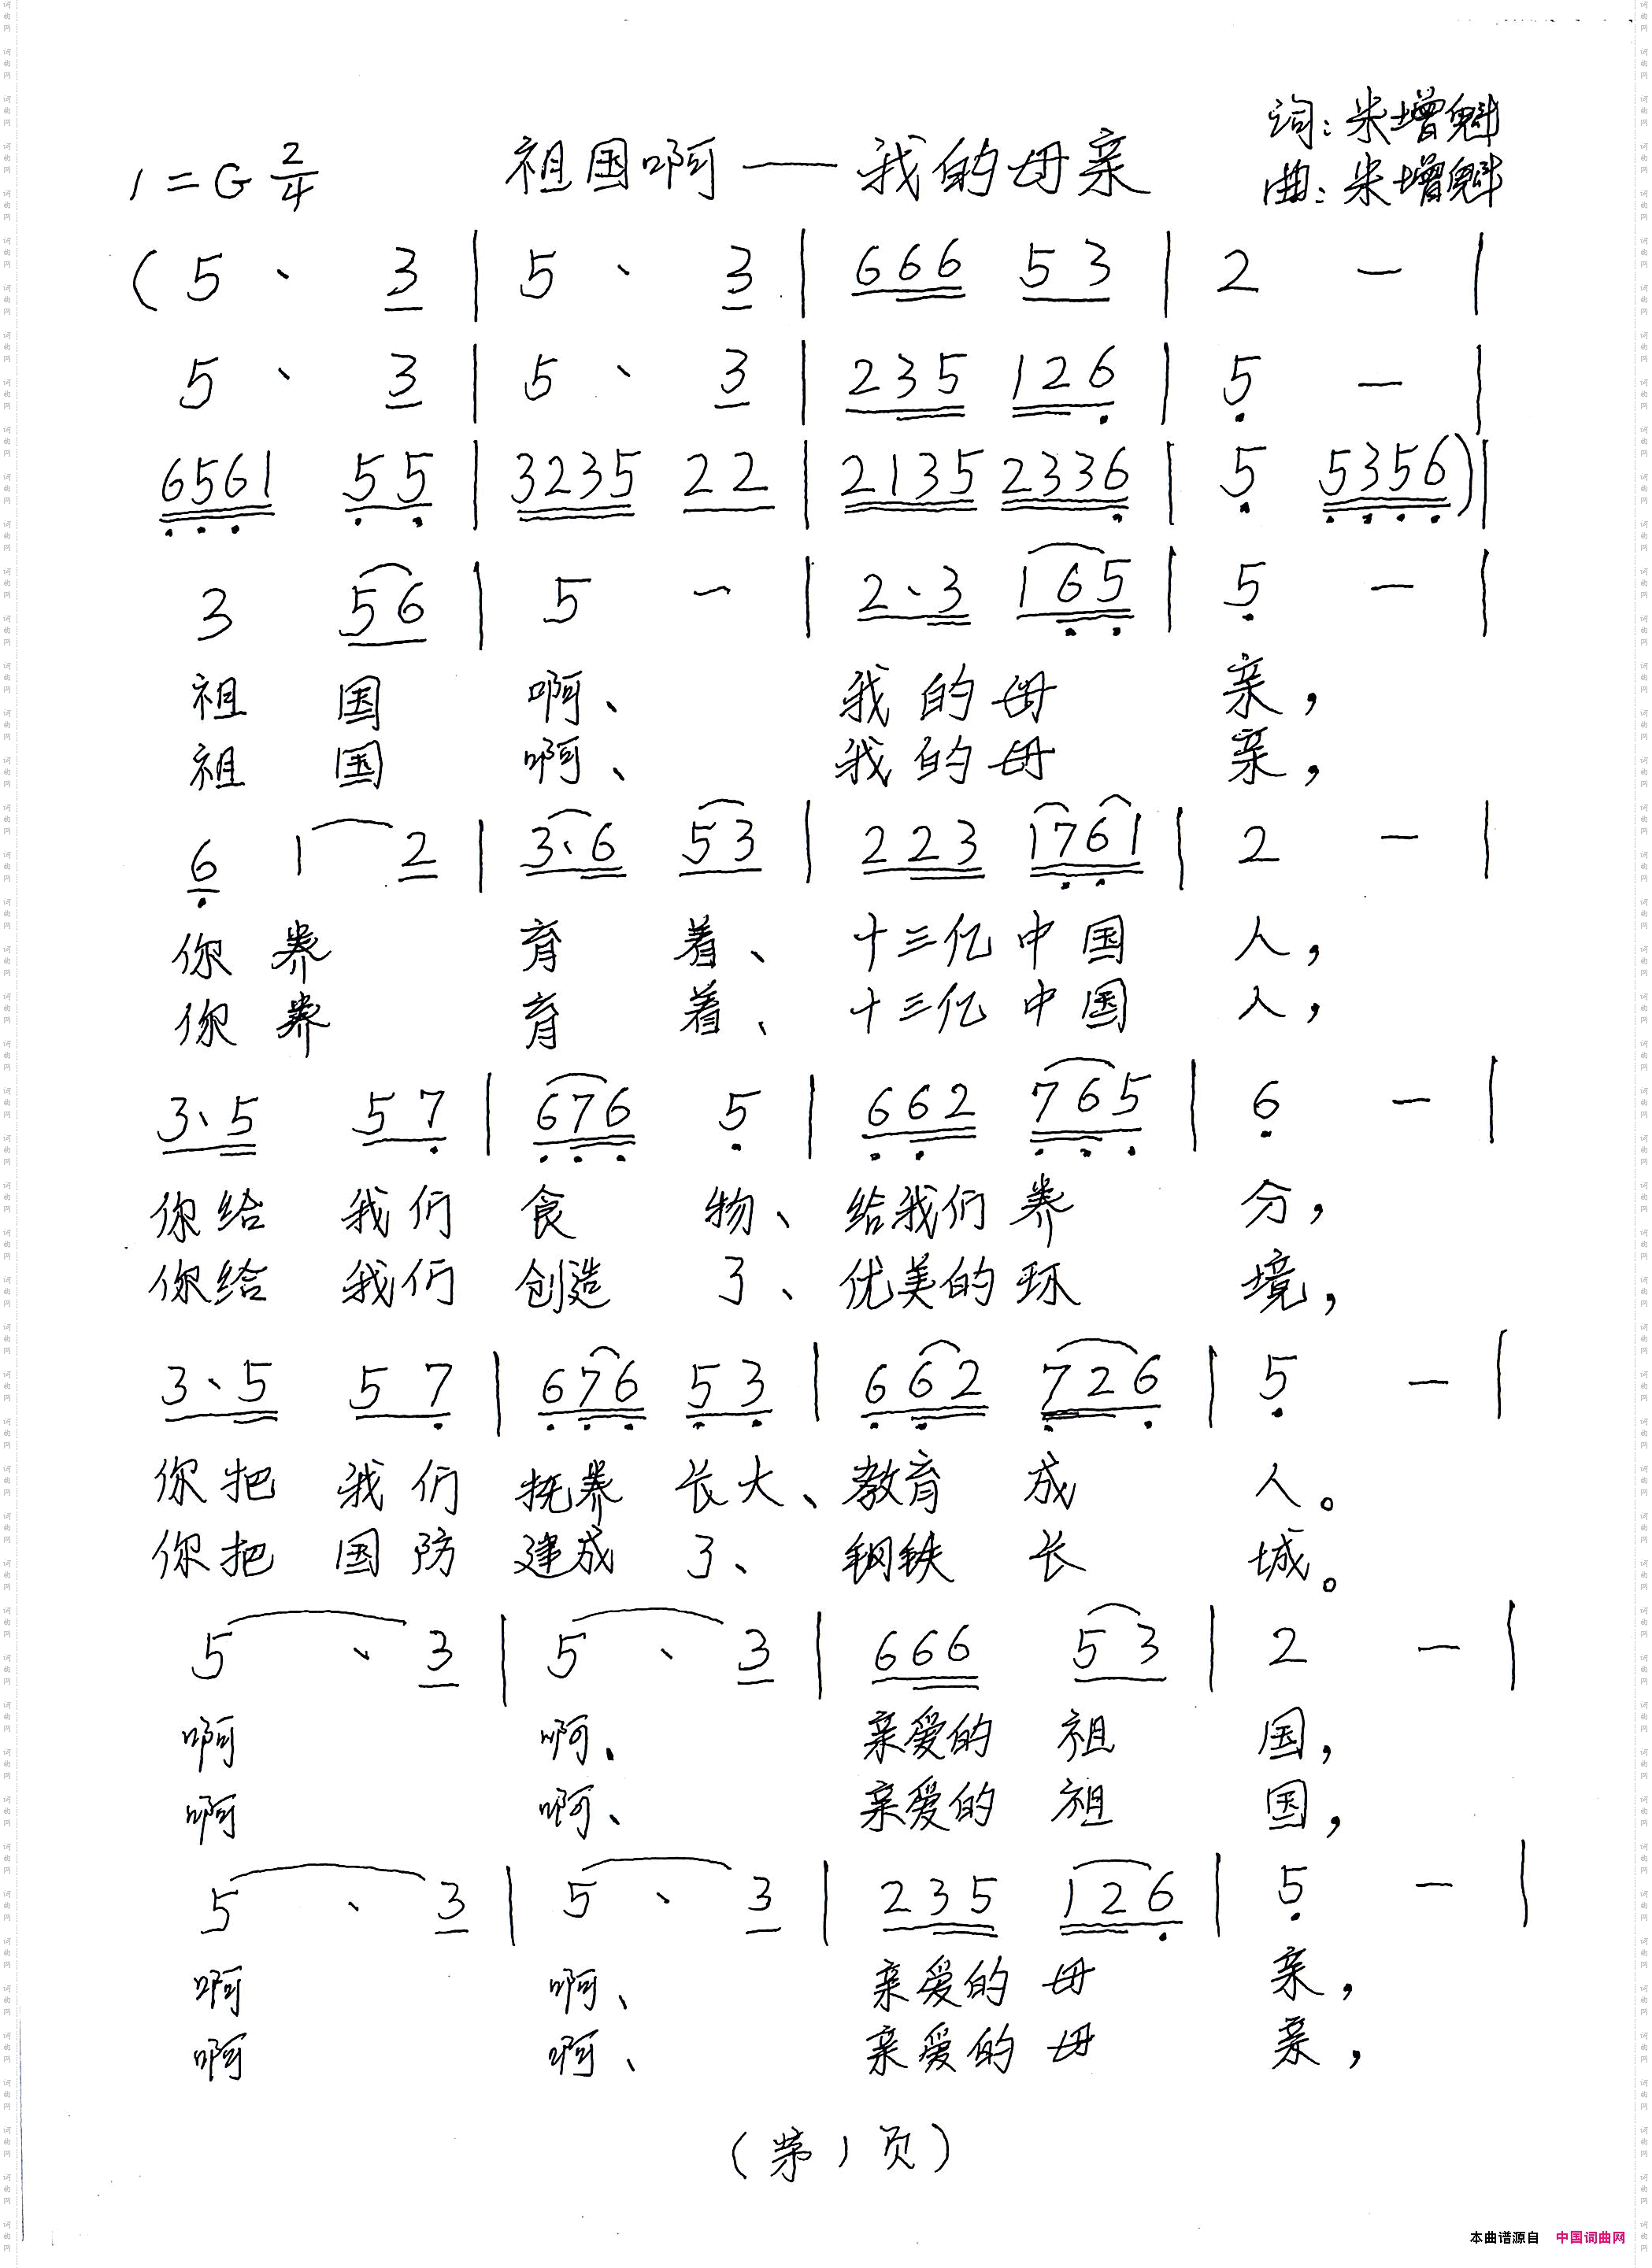 祖国啊——我的母亲
词:朱增魁
1=G 2/4
曲:朱增魁
(5、 3 | 5、 3 | 666 53 | 2 — |
5、 3 | 5、 3 | 235 126 | 5 — |
6561 55 | 3235 22 | 2135 2336 | 5 5356)|
3 56 | 5 — | 2、3 165 | 5 — |
祖 国 啊、 我的母 亲,
祖 国 啊、 我的母 亲,
6 1 2 | 3、6 53 | 223 1761 | 2 — |
你养 育 着、 十三亿中国 人,
你养 育 着、 十三亿中国 人,
3、5 57 | 676 5 | 662 765 | 6 — |
你给 我们 食 物、 给我们养 分,
你给 我们 创造 了、 优美的环 境,
3、5 57 | 676 53 | 662 726 | 5 — |
你把 我们 抚养 长大、教育 成 人。
你把 国防 建成 了、 钢铁 长 城。
5 、 3 | 5 、 3 | 666 53 | 2 — |
啊 啊、 亲爱的 祖 国,
啊 啊、 亲爱的 祖 国,
5 、 3 | 5 、 3 | 235 126 | 5 — |
啊 啊、 亲爱的 母 亲,
啊 啊、 亲爱的 母 亲,
(第1页)
本曲谱源自 中国词曲网